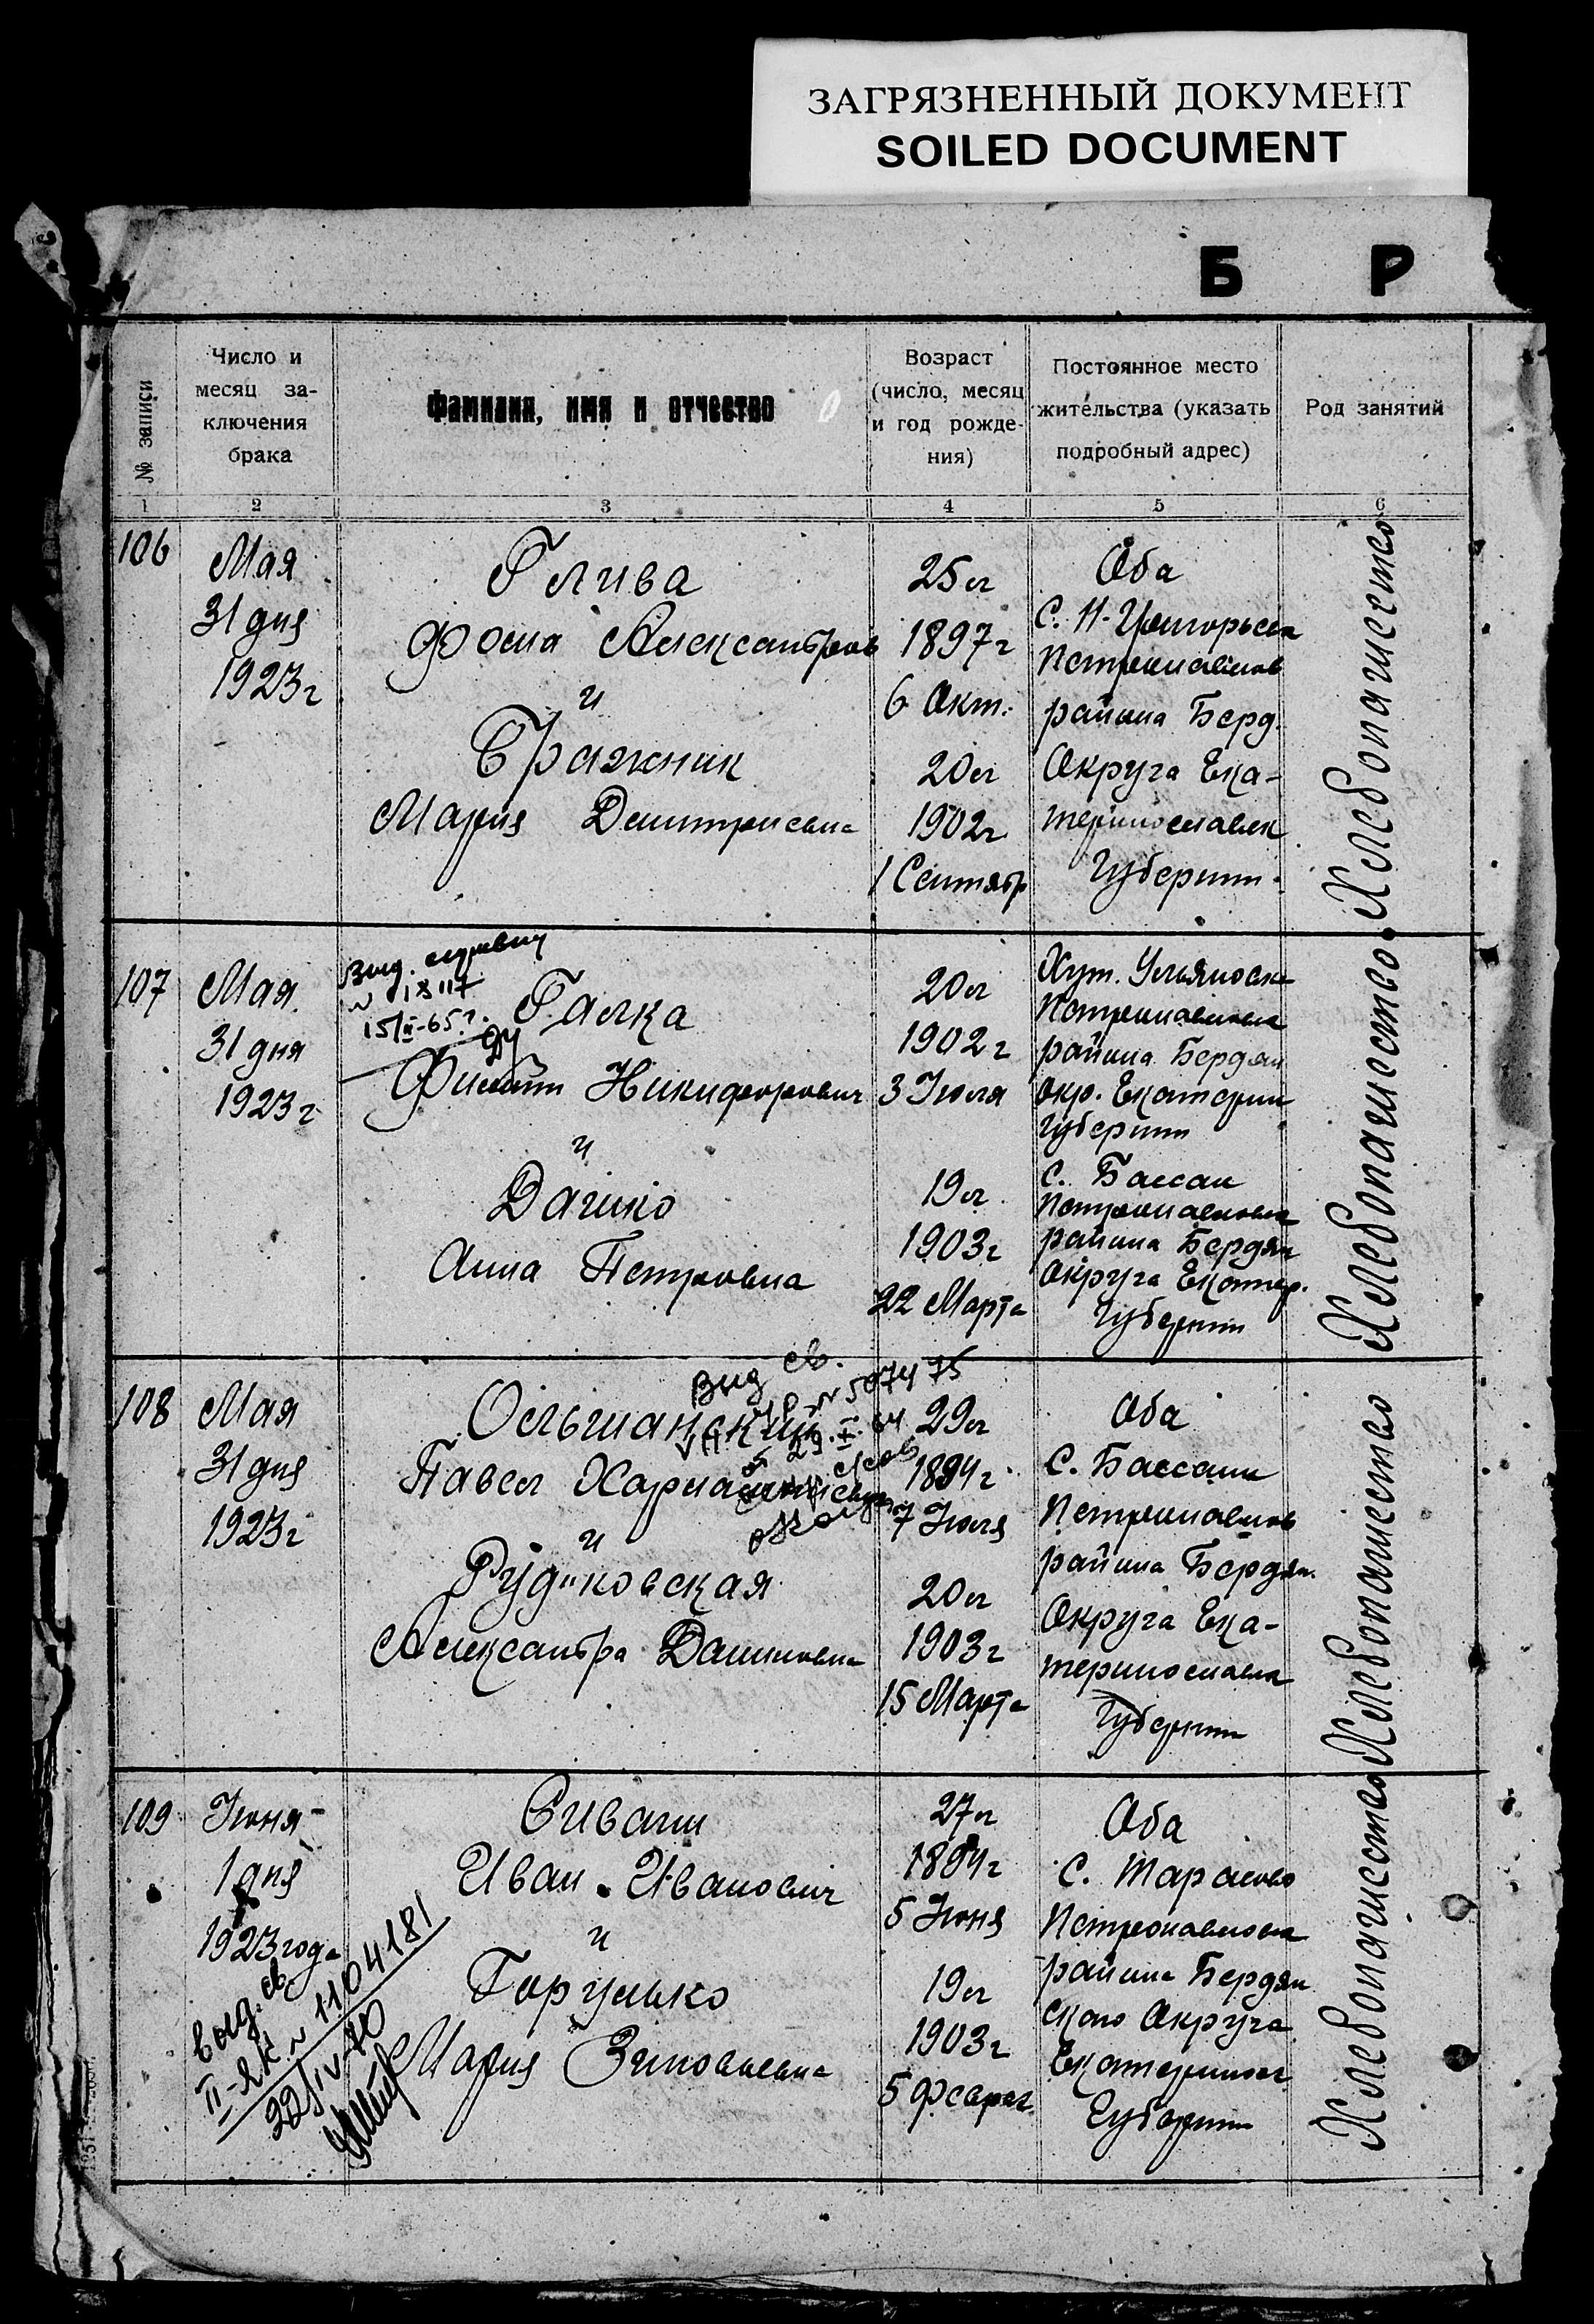 ЗАГРЯЗНЕННЫЙ ДОКУМЕНТ
SOILED DOCUMENT
Б Р
№ записи
Число и
месяц за-
ключения
брака
Фамилия, имя и отчество
Возраст
(число, месяц
и год рожде-
ния)
Постоянное место
жительства (указать
подробный адрес)
Род занятий
1 2 3 4 5 6
106
Мая
31 дня
1923 г
Глива
Фома Александров
и
Стражник
Мария Дмитриевна
25 л
1897 г
6 Окт.
20 л
1902 г
1 Сентябр
Оба
С. Н-Григорьевк
Петропавлов
района Берд.
Округа Ека-
теринославск
Губернии.
Хлебопашество
107
Мая
31 дня
1923 г
Выд. справку
15/II-65 г.
Галка
Филипп Никифорович
и
Дашко
Анна Петровна
20 л
1902 г
3 Июля
19 л
1903 г
22 Марта
Хут. Ульяновка
Петропавловск
района Бердян
окр. Екатерин
Губернии
С. Бассан
Петропавловск
района Бердян
Округа Екатер.
Губернии
Хлебопашество
108
Мая
31 дня
1923 г
Выд св.
Ольшанский
Павел
и
Рудиковская
Александра Даниловна
29 л
1894 г
7 Июля
20 л
1903 г
15 Марта
Оба
С. Бассань
Петропавлов
района Бердян.
Округа Ека-
теринославск
Губернии
Хлебопашество
109
Июня
1 дня
1923 года
выд. св
II-ЯК № 1104181
22/IV-70
Сиваш
Иван Иванович
и
Горулько
Мария Зиновьевна
27 л
1894 г
5 Июня
19 л
1903 г
5 Феврал
Оба
С. Тарасово
Петропавловск
района Бердян
ского Округа
Екатеринос
Губернии
Хлебопашество